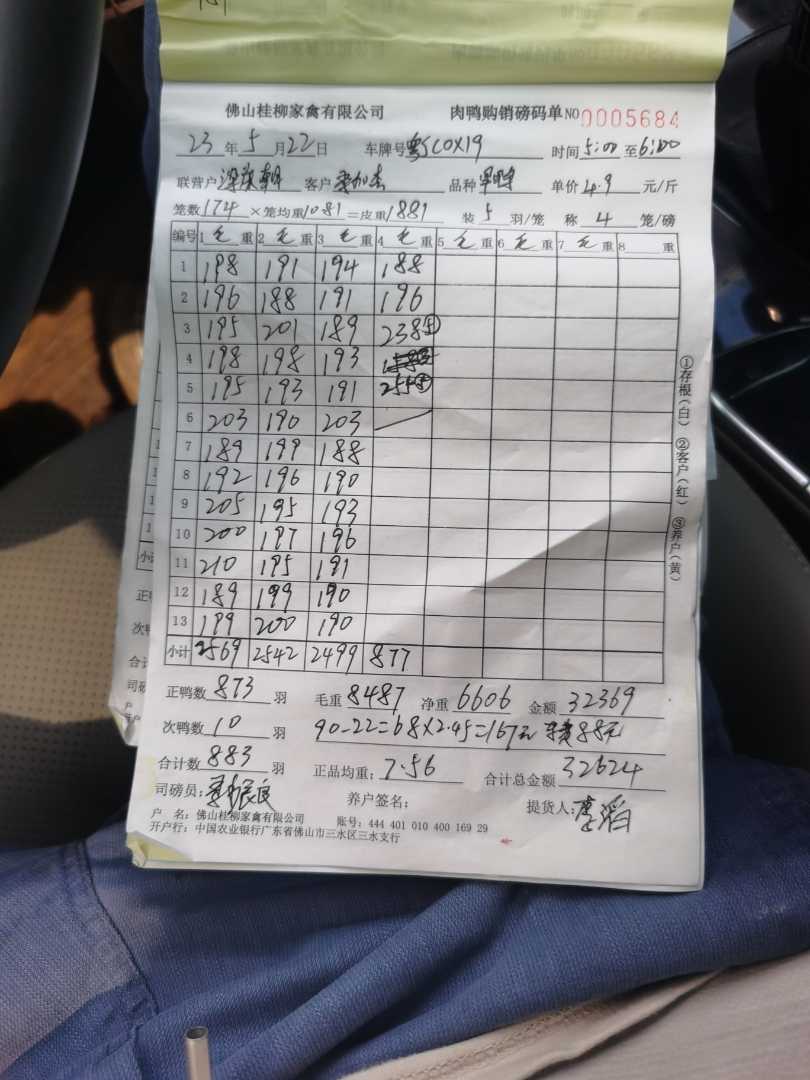 佛山桂柳家禽有限公司 肉鸭购销磅码单 NO 0005684
23年5月22日 车牌号 粤JCOX19 时间5:00至6:00
联营户 客户 品种 单价4.9元/斤
笼数174×笼均重1081=皮重1881 装5羽/笼 称4笼/磅
编号 1毛重 2毛重 3毛重 4毛重 5毛重 6毛重 7毛重 8 重
1 198 191 194 188
2 196 188 191 196
3 195 201 189 238⑤
4 198 198 193
5 195 193 191
6 203 190 203
7 189 199 188
8 192 196 190
9 205 195 193
10 200 197 196
11 210 195 191
12 189 199 190
13 199 200 190
小计 2569 2542 2499 877
正鸭数873羽 毛重8487 净重6606 金额32369
次鸭数10羽 90-22=68×2.45=167元 88元
合计数883羽 正品均重:7.56 合计总金额32624
司磅员: 养户签名: 提货人:
户 名: 佛山桂柳家禽有限公司 账号: 444 401 010 400 169 29
开户行: 中国农业银行广东省佛山市三水区三水支行
①存根(白) ②客户(红) ③养户(黄)